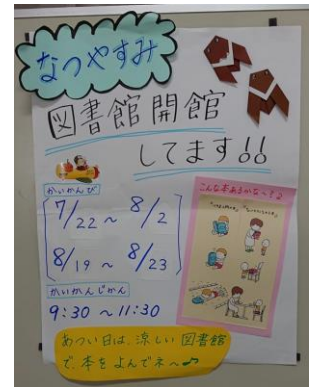 なつやすみ
図書館開館
してます!!
かいかんび
7/22 ~ 8/2
8/19 ~ 8/23
かいかんじかん
9:30 ~ 11:30
あつい日は、涼しい図書館
で、本をよんでネ~♪